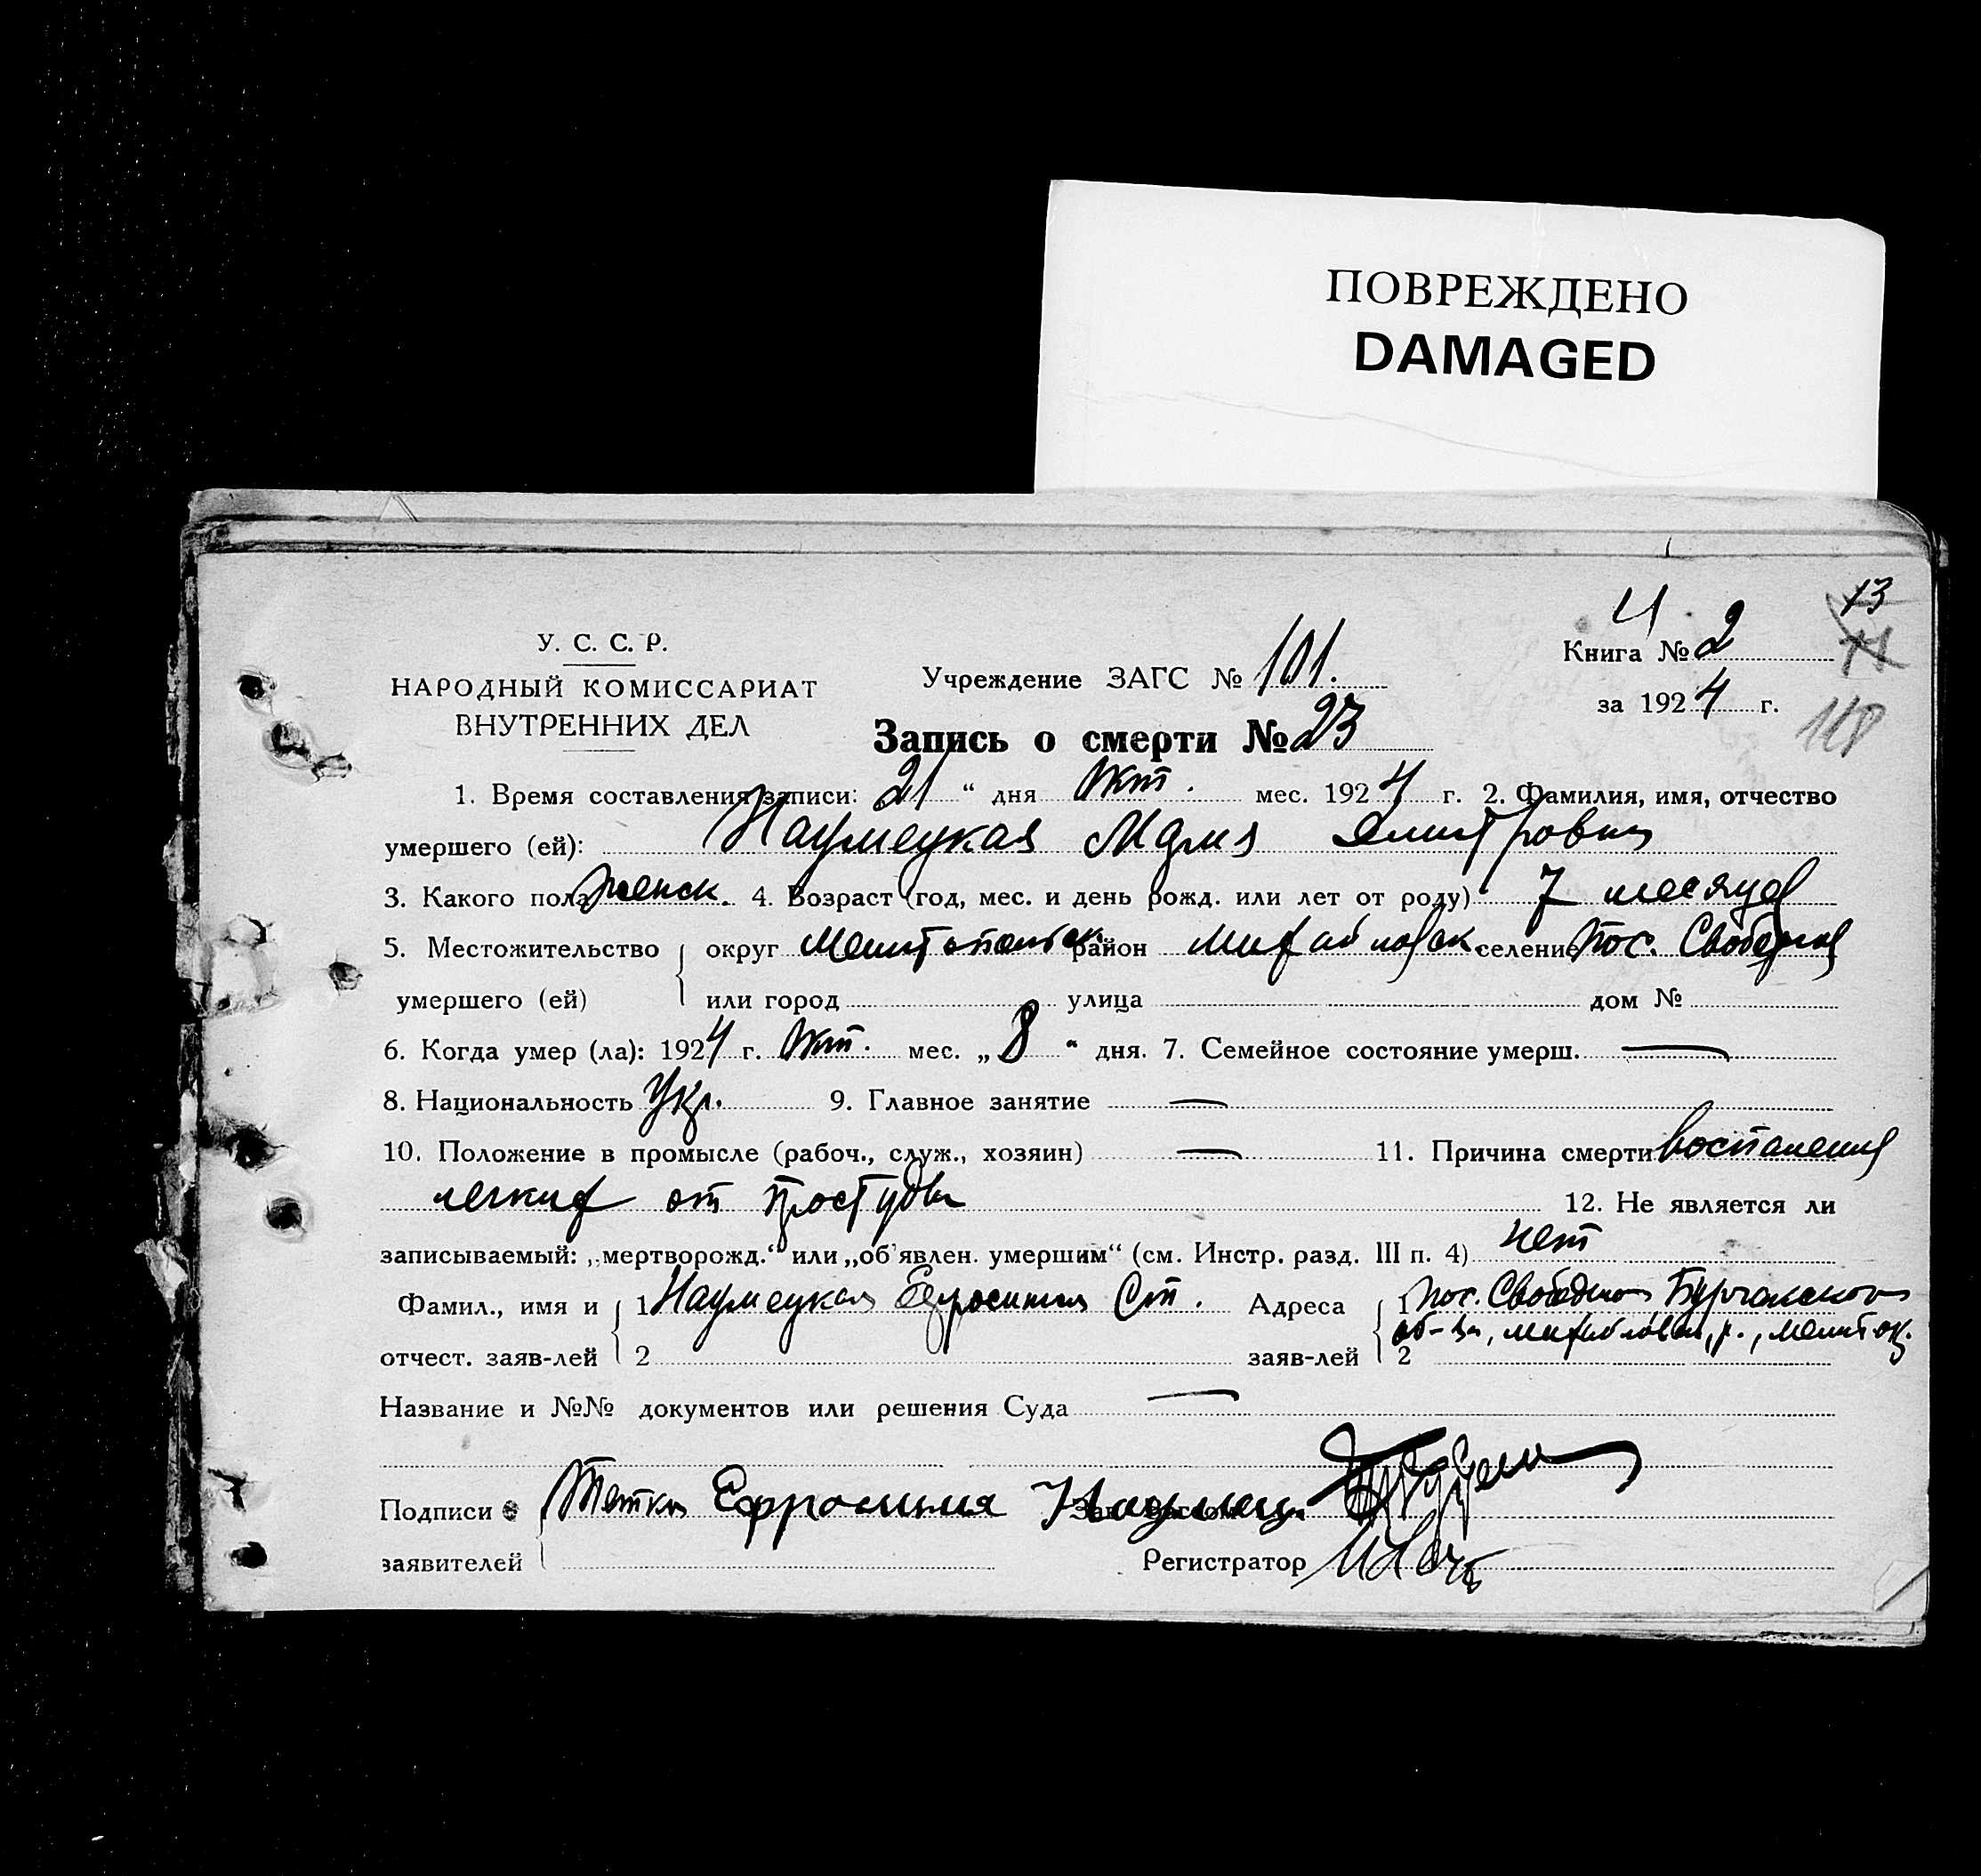 ПОВРЕЖДЕНО
DAMAGED
13
У. С. С. Р.
НАРОДНЫЙ КОМИССАРИАТ
ВНУТРЕННИХ ДЕЛ
Учреждение ЗАГС № 101.
Книга № 2
за 1924 г.
118
Запись о смерти № 23
1. Время составления записи: 21 “ дня Окт. мес. 1924 г. 2. Фамилия, имя, отчество
умершего (ей): Наумецкая Дмитровна
3. Какого пола женск. 4. Возраст (год, мес. и день рожд. или лет от роду) 7 месяцев
5. Местожительство округ Мелитопольск район Михайловск. селение пос. Свободный
умершего (ей) или город улица дом №
6. Когда умер (ла): 1924 г. Окт. мес. „8“ дня. 7. Семейное состояние умерш. —
8. Национальность Укр. 9. Главное занятие —
10. Положение в промысле (рабоч., служ., хозяин) — 11. Причина смерти воспаления
легких от простуды 12. Не является ли
записываемый: „мертворожд.“ или „об'явлен. умершим“ (см. Инстр. разд. III п. 4) нет
Фамил., имя и 1 Наумецкая Ефросиния Ст. Адреса 1 пос. Свободный Бурчакского
об-ва, Михайловск, р., Мелит ок.
отчест. заяв-лей 2 заяв-лей 2
Название и №№ документов или решения Суда —
Подписи Тетка Ефросиния Наумец.
заявителей Регистратор